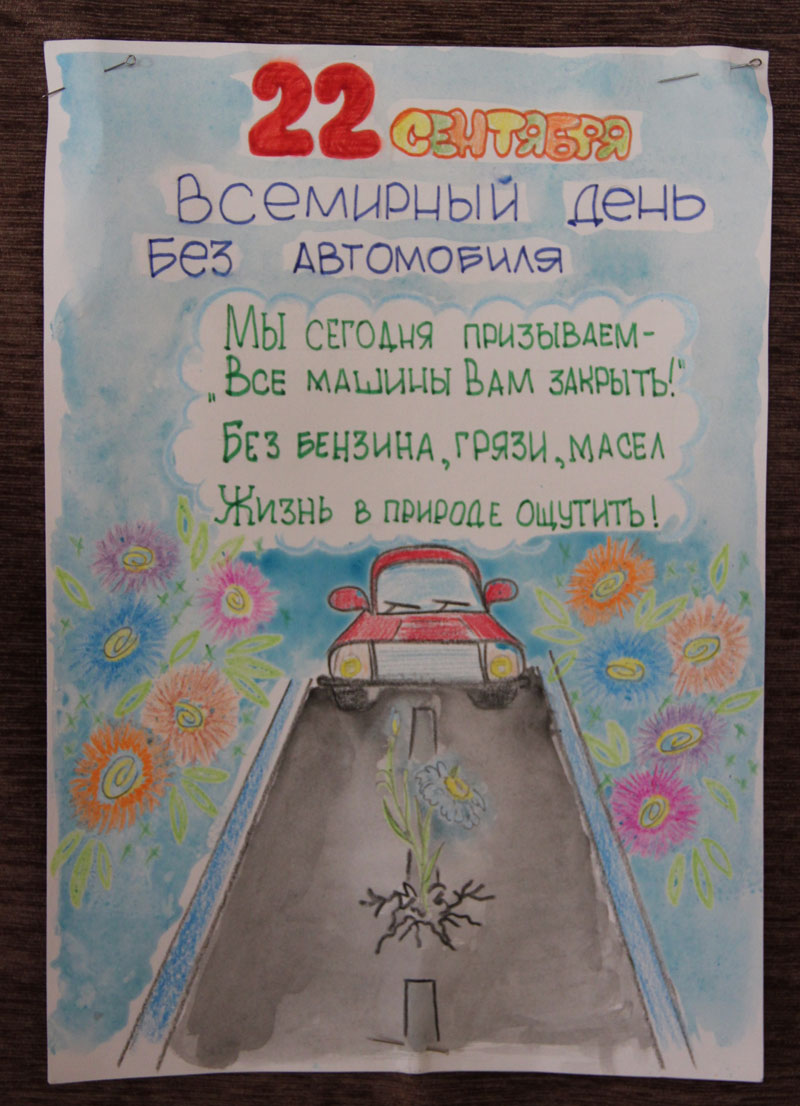 22 СЕНТЯБРЯ
ВСЕМИРНЫЙ ДЕНЬ
БЕЗ АВТОМОБИЛЯ
МЫ СЕГОДНЯ ПРИЗЫВАЕМ-
„ВСЕ МАШИНЫ ВАМ ЗАКРЫТЬ!"
БЕЗ БЕНЗИНА, ГРЯЗИ, МАСЕЛ
ЖИЗНЬ В ПРИРОДЕ ОЩУТИТЬ!